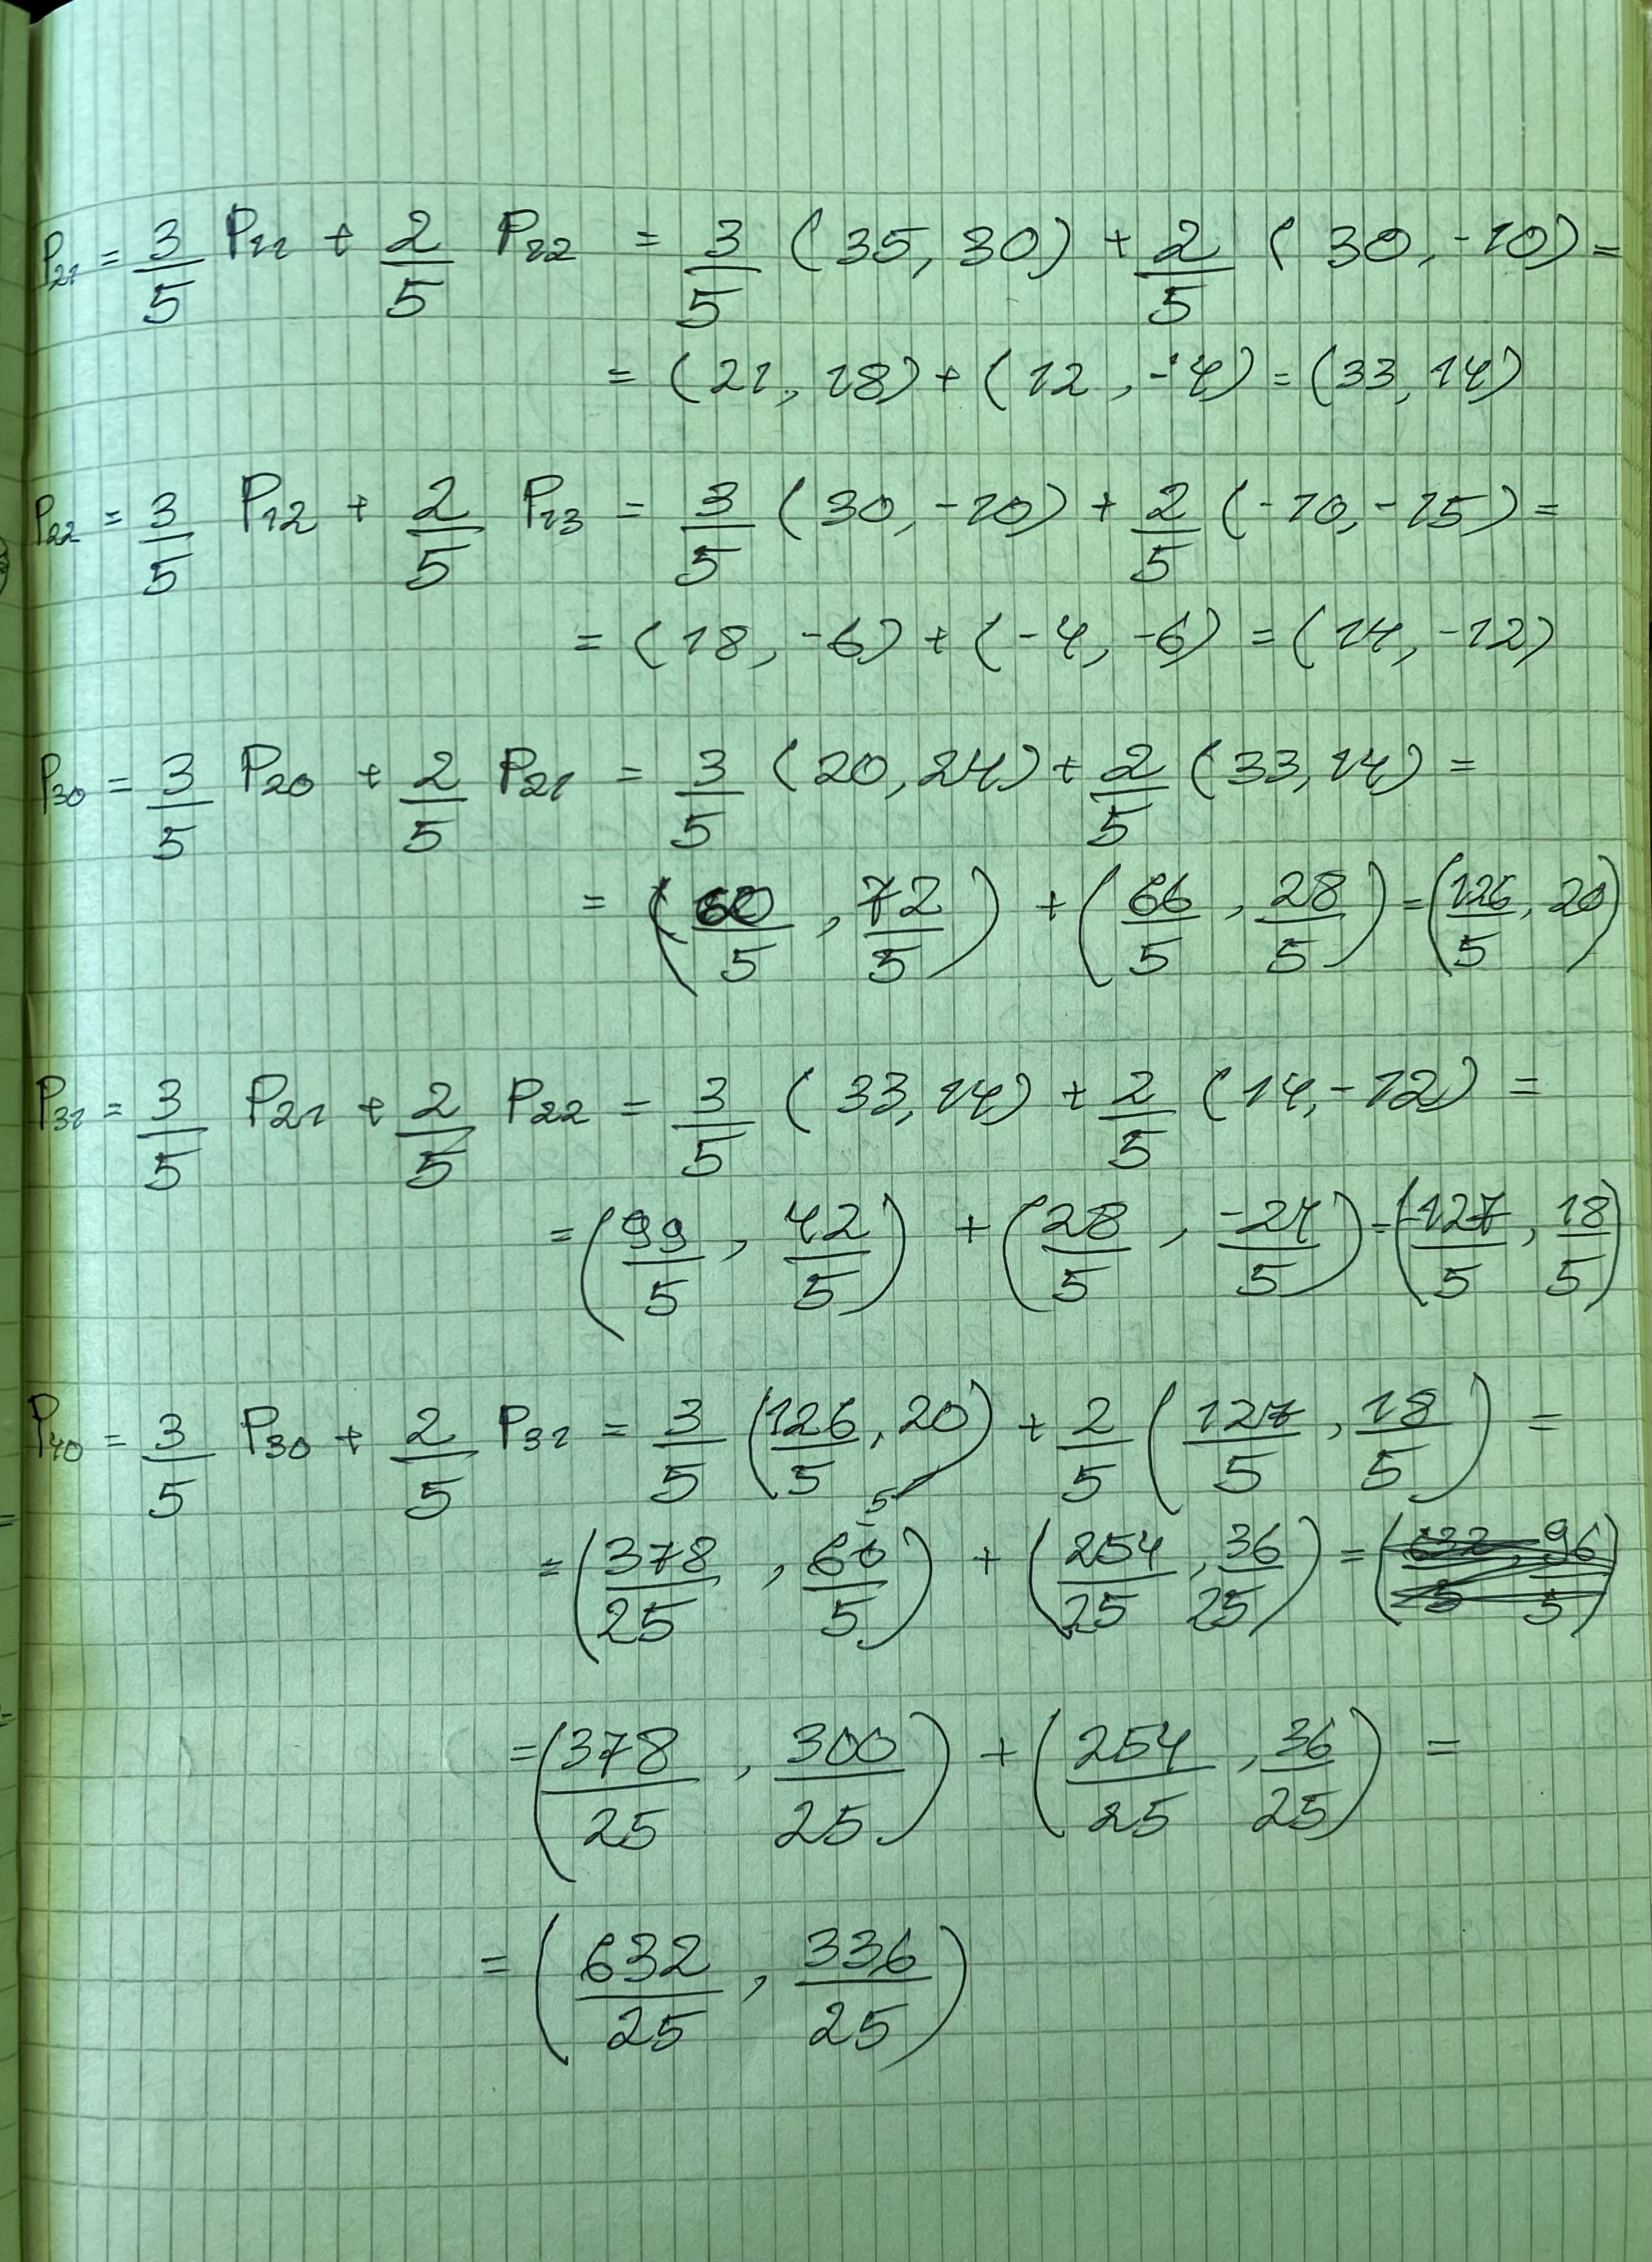 P₂₁ = 3/5 P₁₁ + 2/5 P₁₂ = 3/5 (35, 30) + 2/5 (30, -10) =
= (21, 18) + (12, -4) = (33, 14)
P₂₂ = 3/5 P₁₂ + 2/5 P₁₃ = 3/5 (30, -10) + 2/5 (-10, -15) =
= (18, -6) + (-4, -6) = (14, -12)
P₃₀ = 3/5 P₂₀ + 2/5 P₂₁ = 3/5 (20, 24) + 2/5 (33, 14) =
= (60/5, 72/5) + (66/5, 28/5) = (126/5, 20)
P₃₁ = 3/5 P₂₁ + 2/5 P₂₂ = 3/5 (33, 14) + 2/5 (14, -12) =
= (99/5, 42/5) + (28/5, -24/5) = (127/5, 18/5)
P₄₀ = 3/5 P₃₀ + 2/5 P₃₁ = 3/5 (126/5, 20) + 2/5 (127/5, 18/5) =
= (378/25, 60/5) + (254/25, 36/25) =
= (378/25, 300/25) + (254/25, 36/25) =
= (632/25, 336/25)